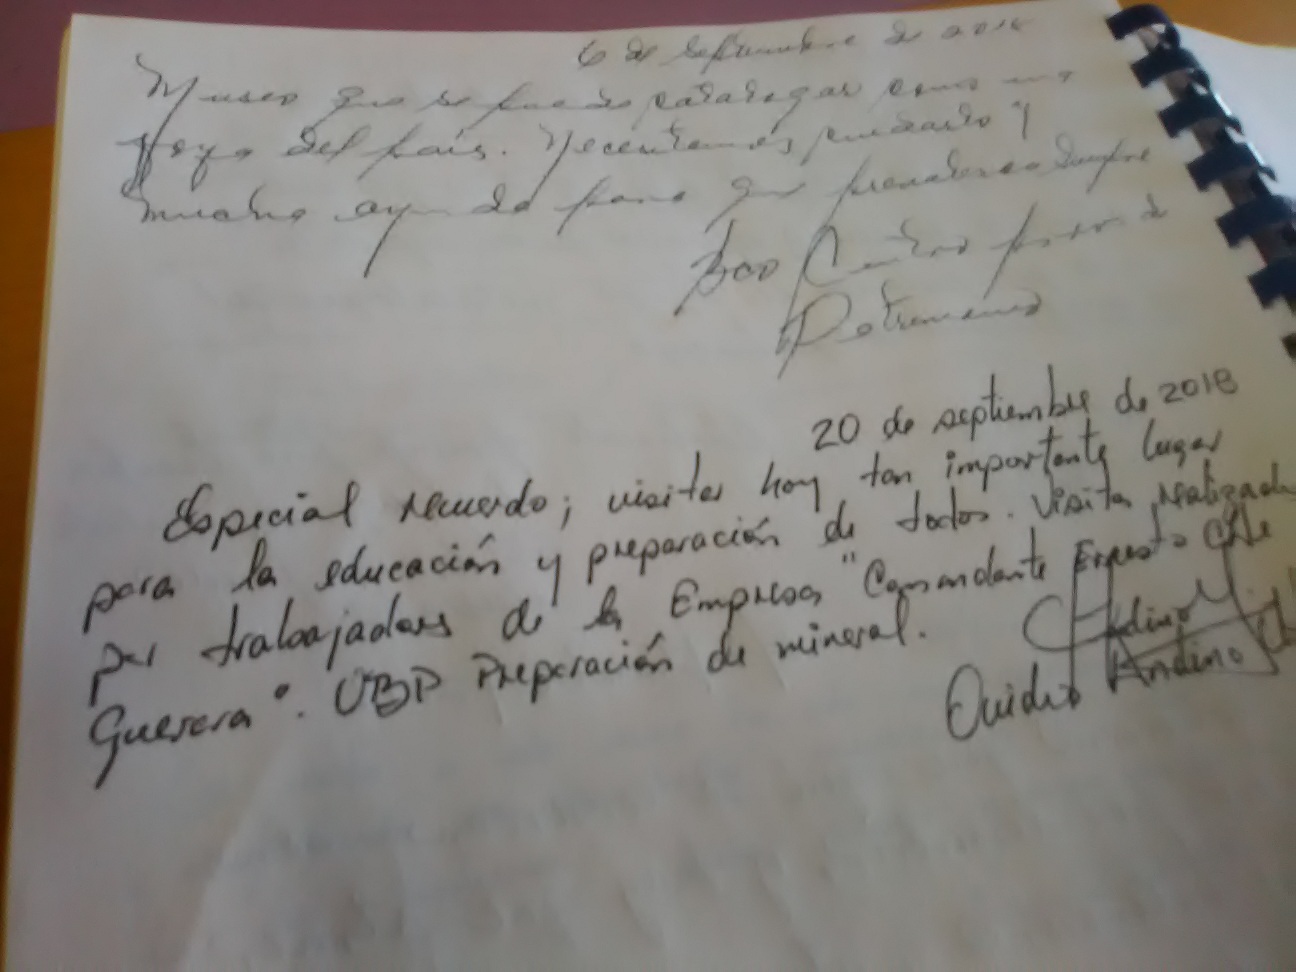 6 de septiembre de
Museo que se puede catalogar como una
Joya del país. Necesitamos cuidarlo y
mucha ayuda para que
Centro
Patrimonio
20 de septiembre de 2018
Especial recuerdo; visitar hoy tan importante lugar
para la educación y preparación de todos. Visita realizada
por trabajadores de la Empresa "Comandante Ernesto Che
Guevara". UBP Preparación de mineral.
Ovidio Andino